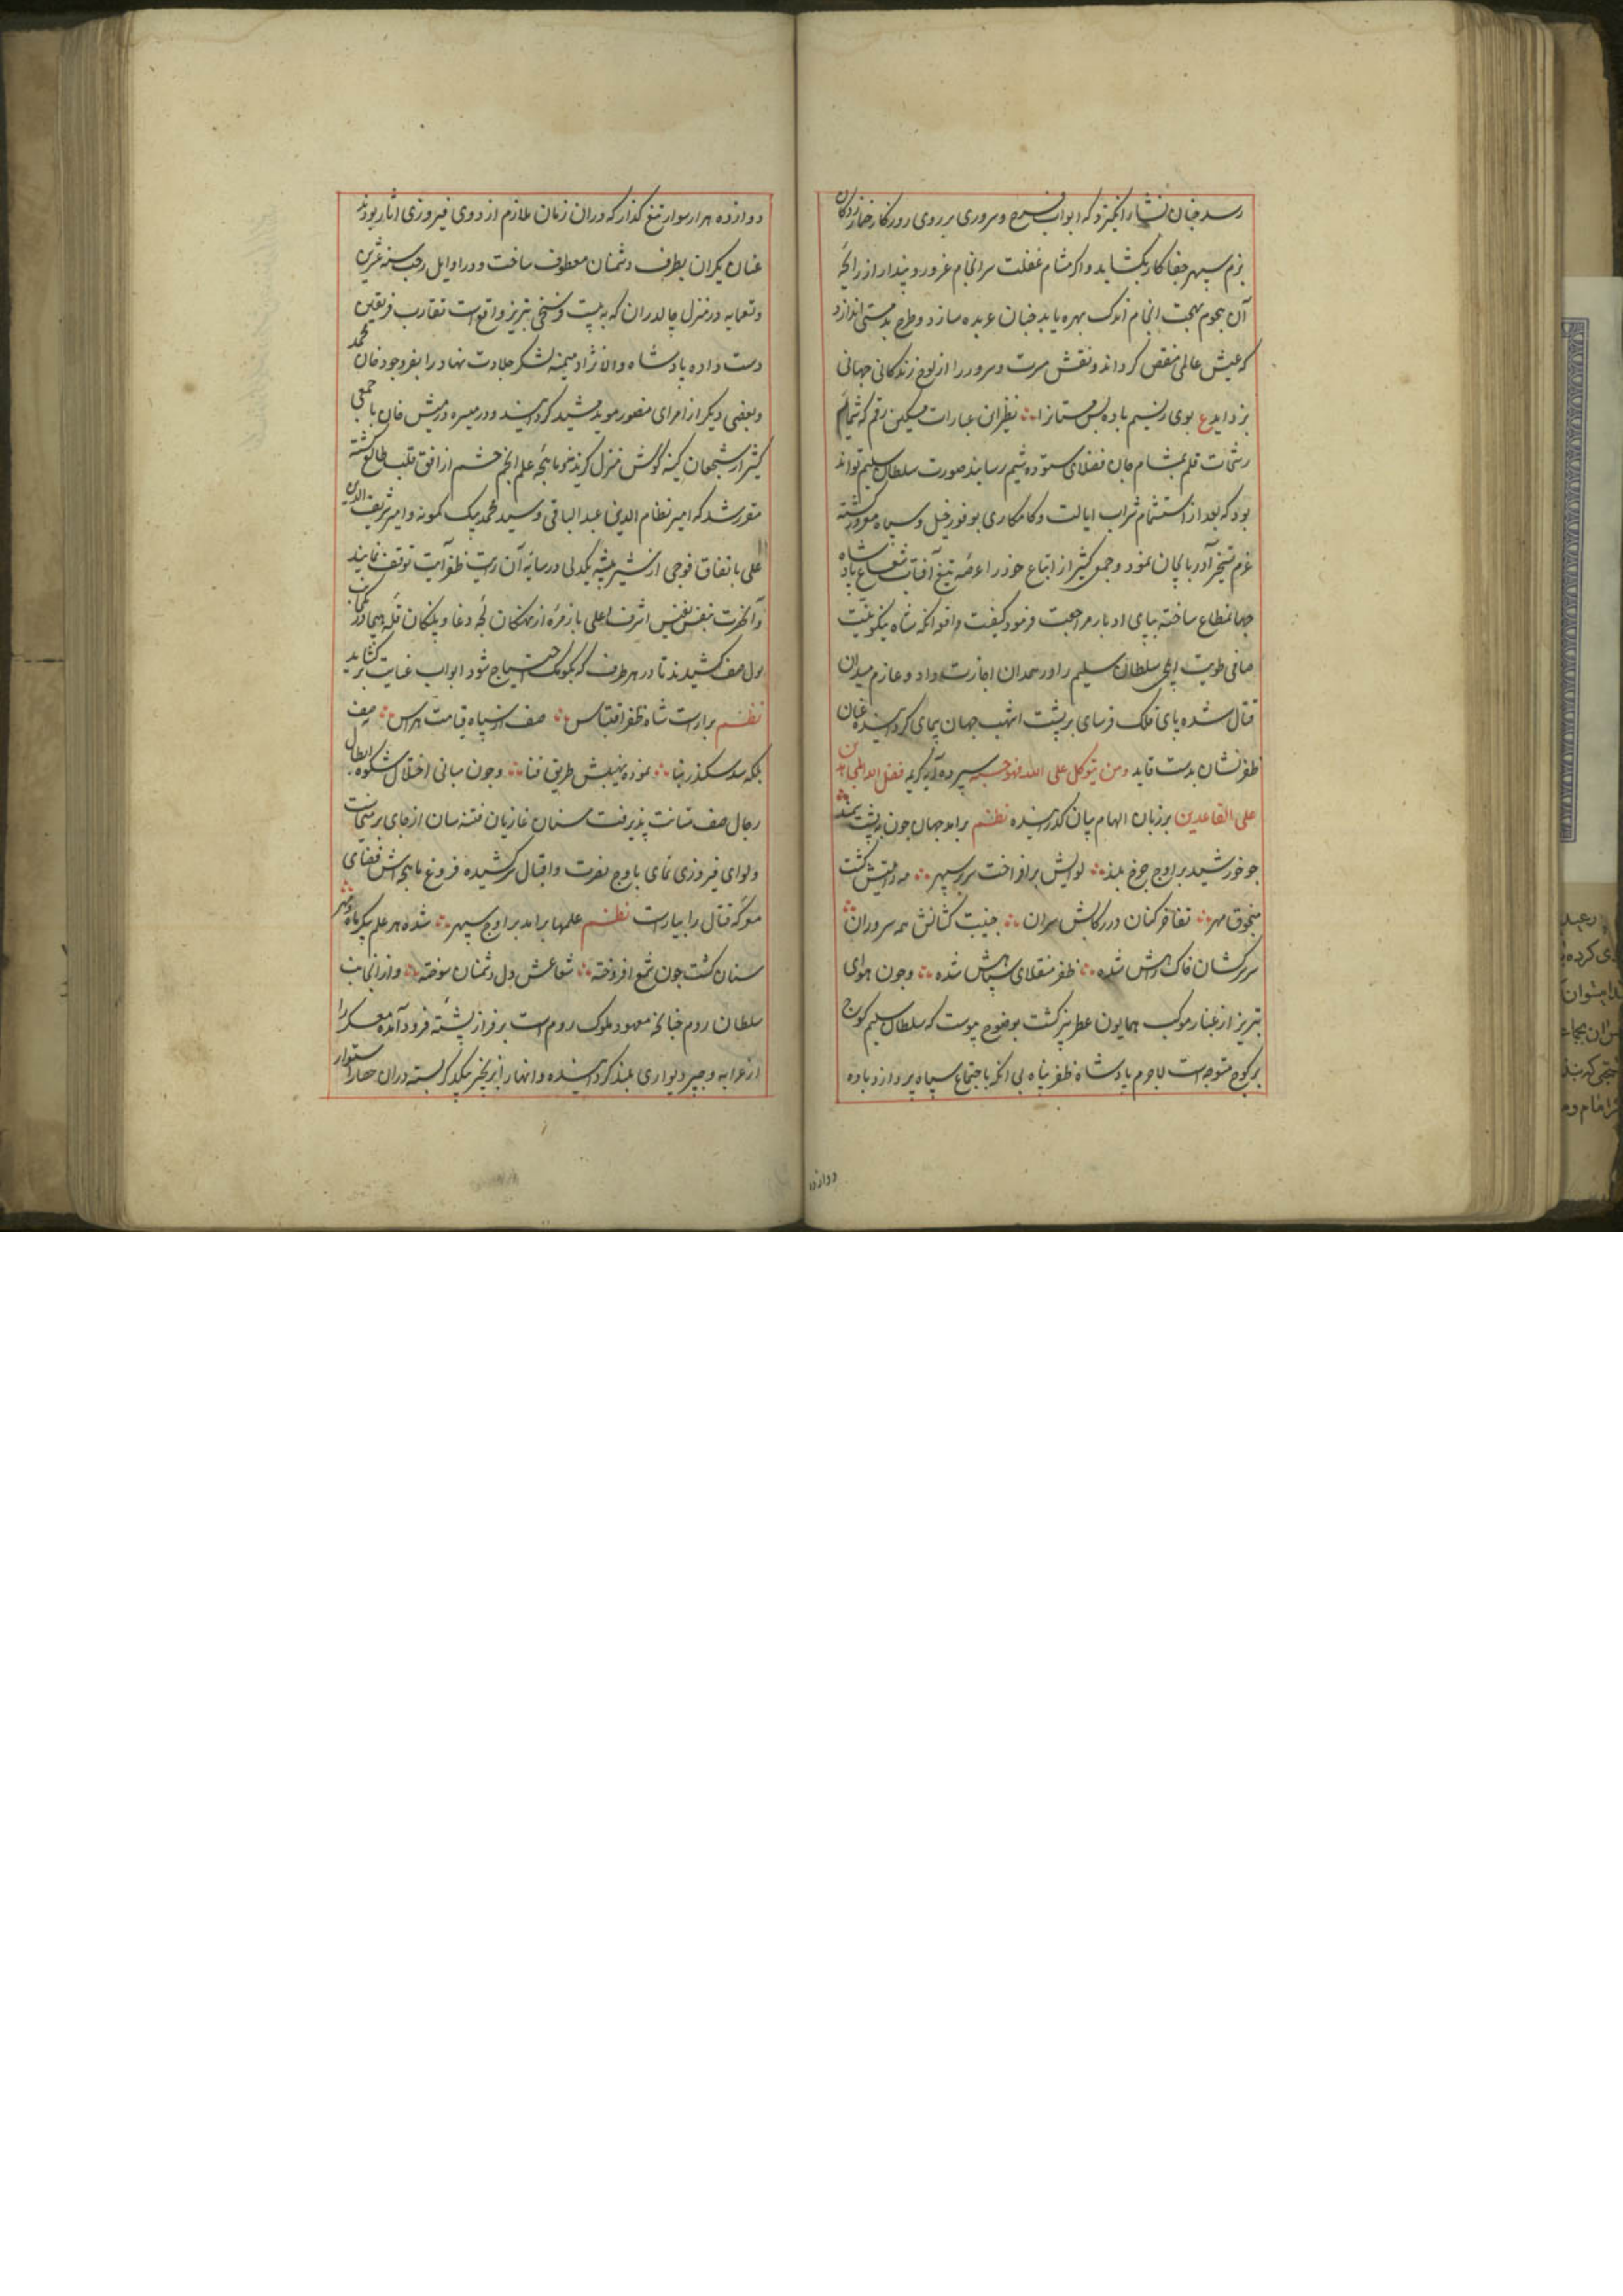 رسد چنان نشاء انگیزد که ابواب فرح و سروری بر روی روزگار خمار زدکان
بزم سپهر جفا کار بکشاید و اگر مشام غفلت سرانجام غرور و پندار از رایحهٔ
آن نجوم بهجت انجام اندک بهره یابد چنان عربده سازد و طرح بدمستی اندازد
که عیش عالمی منقص کرداند و نقش مسرت و سرور را از لوح زندکانی جهانی
بزداید ع بوی از نسیم باده بس مستانرا نظیر این عبارات مسکین رقم که شمایم
رشحات قلم بمشام جان فضلای ستوده شیم رساند صورت سلطان سلیم تواند
بود که بعد از استشمام شراب ایالت و کامکاری بوفور خیل و سپاه مغرور کشته
عزم تسخیر آذربایجان نمود و جمعی کثیر از اتباع خود را عرضه تیغ آفتاب شعاع پادشاه
جهانمطاع ساخته بپای ادبار مراجعت فرمود کیفیت واقعه انکه شاه نیکونیت
صافی طویت ایلچی سلطان سلیم را در همدان اجازت داد و عازم میدان
قتال شده پای فلک فرسای بر پشت اشهب جهان پیمای کردانیده عنان
ظفر نشان بدست قاید ومن یتوکل علی الله فهو حسبه سپرد و آیه کریمه فضل الله المجاهدین
علی القاعدین بر زبان الهام بیان کذرانیده نظم برامد جهان جون به پشت سمند
جو خورشید بر اوج جرخ بلند لوایش برافراخت سر بر سپهر مه رایتش کشت
منجوق مهر تفاخر کنان در رکابش سران جنیبت کشانش همه سروران
سر سرکشان خاک راهش شده ظفر منقلای سپاهش شده وجون هوای
تبریز از غبار موکب همایون عطربیز کشت بوضوح پیوست که سلطان سلیم کوج
بر کوج متوجه است لاجرم پادشاه ظفر پناه بی انکه باجتماع سپاه پردازد با ده
دوازده
دوازده هزار سوار تیغ کذار که دران زمان ملازم اردوی فیروزی اثار بودند
عنان یکران بطرف دشمنان معطوف ساخت و در اوایل رجب سنه عشرین
وتسعمایه در منزل چالدران که به بیست فرسخی تبریز واقع است تقارب فریقین
دست داده پادشاه والانژاد میمنه لشکر جلادت نهاد را بفر وجود خان محمد
و بعضی دیکر از امرای منصور موید مشید کردانید و در میسره درمیش خان با جمعی
کثیر از شجعان کینه کوش منزل کزیدند و ماهچهٔ علم انجم حشم از افق قلب طالع کشته
مقرر شد که امیر نظام الدین عبد الباقی و سید محمد بیک کمونه و امیر شریف الدین
علی باتفاق فوجی از شیر بیشه یکدلی در سایه آن رایت ظفر آیت توقف نمایند
و آنحضرت بنفس نفیس اشرف اعلی با زمرهٔ از نهنکان لجهٔ دغا و پلنکان قلهٔ هیجا در مکان
بول صف کشیدند تا در هر طرف که بکومک احتیاج شود ابواب عنایت برکشاید
نظم برآراست شاه ظفر اقتباس صف از سپاه قیامت هراس نه صف
بلکه سد سکندر بنا نموده نهیبش طریق فنا وجون مبانی اختلال شکوه ابطال
رجال صف متانت پذیرفت سنان غازیان فتنه سان از جای برمیخاست
و لوای فیروزی نمای باوج نصرت و اقبال سرکشیده فروغ ماهچه اش فضای
معرکه قتال را بیاراست نظم علمها برامد بر اوج سپهر شده هر علم پیکر ماه و مهر
سنان کشت جون شمع افروخته شعاعش دل دشمنان سوخته و از انجانب
سلطان روم چنانچه معهود ملوک روم است بر فراز پشته فرود آمده معسکر را
از عرابه و چپر دیواری بلند کردانیده و انها را بزنجیر بیکدیکر بسته دران حصار استوار